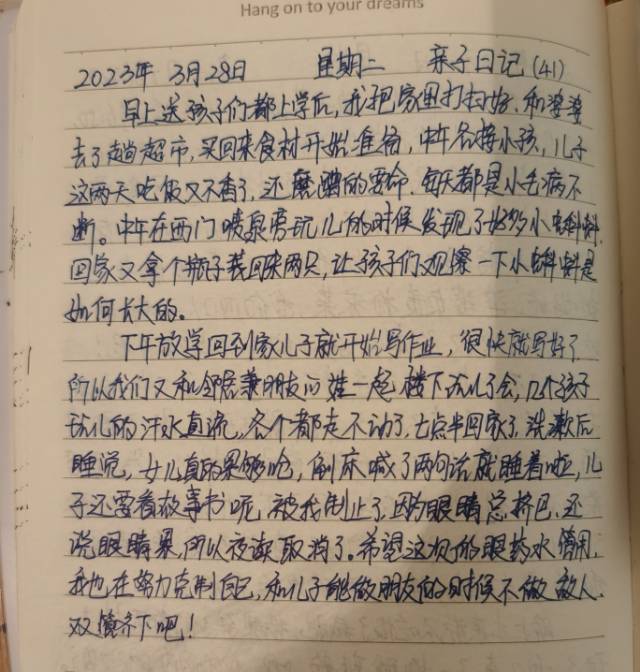 Hang on to your dreams
2023年 3月28日 星期二 亲子日记(41)
早上送孩子们都上学后,我把家里打扫好.和婆婆
去了趟超市,买回来食材开始准备,中午各接小孩,儿子
这两天吃饭又不香了,还磨蹭的要命.每天都是小毛病不
断。中午在西门喷泉旁玩儿的时候发现了好多小蝌蚪.
回家又拿个瓶子装回来两只,让孩子们观察一下小蝌蚪是
如何长大的。
下午放学回到家儿子就开始写作业,很快就写好了
所以我们又和邻居兼朋友一起楼下玩儿了会,几个孩子
玩儿的汗水直流,各个都走不动了.七点半回家了.洗漱后
睡觉,女儿真的累够呛,倒床喊了两句话就睡着啦,儿
子还要看故事书呢,被我制止了.因为眼睛总挤巴.还
说眼睛累,所以夜读取消了。希望这次的眼药水管用.
我也在努力克制自己,和儿子能做朋友的时候不做敌人.
双管齐下吧!